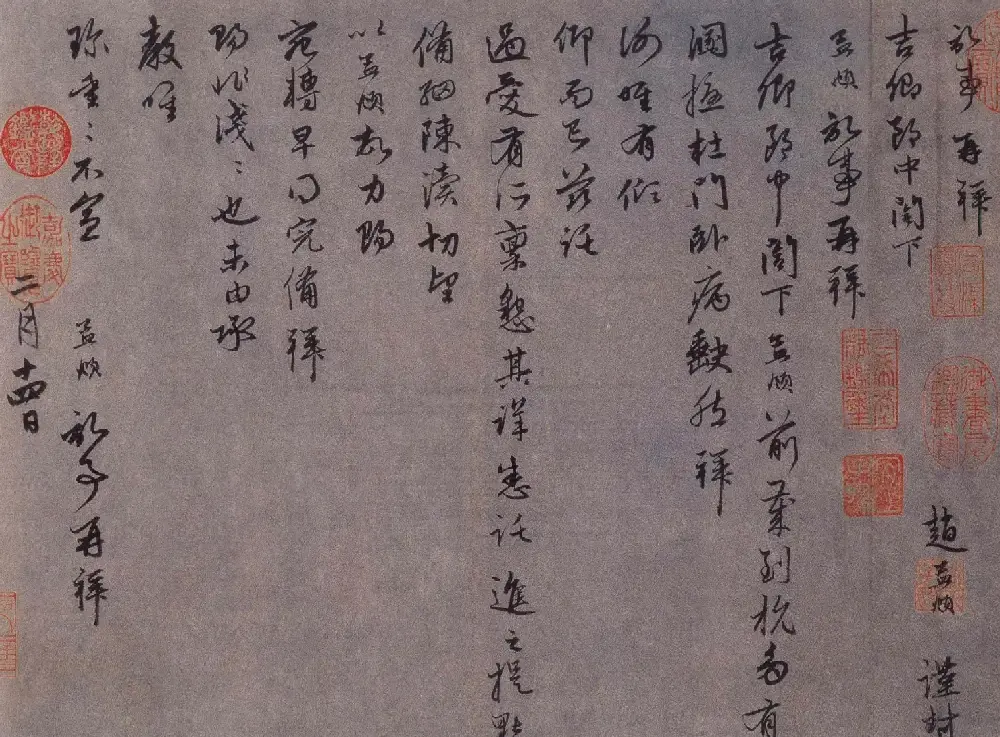 記事再拜 趙孟頫 謹封
吉卿郎中閣下
孟頫 記事再拜
吉卿郎中閣下孟頫前歲到杭有
杜門卧病拜
唯有傾
仰而已茲託
過愛有所稟懇其詳悉託進之提點
備細陳瀆切望
以孟頫故力賜
宛轉早得完備拜
賜非淺淺也未由承
教唯
珍重重不宣 孟頫 記事再拜
二月十四日